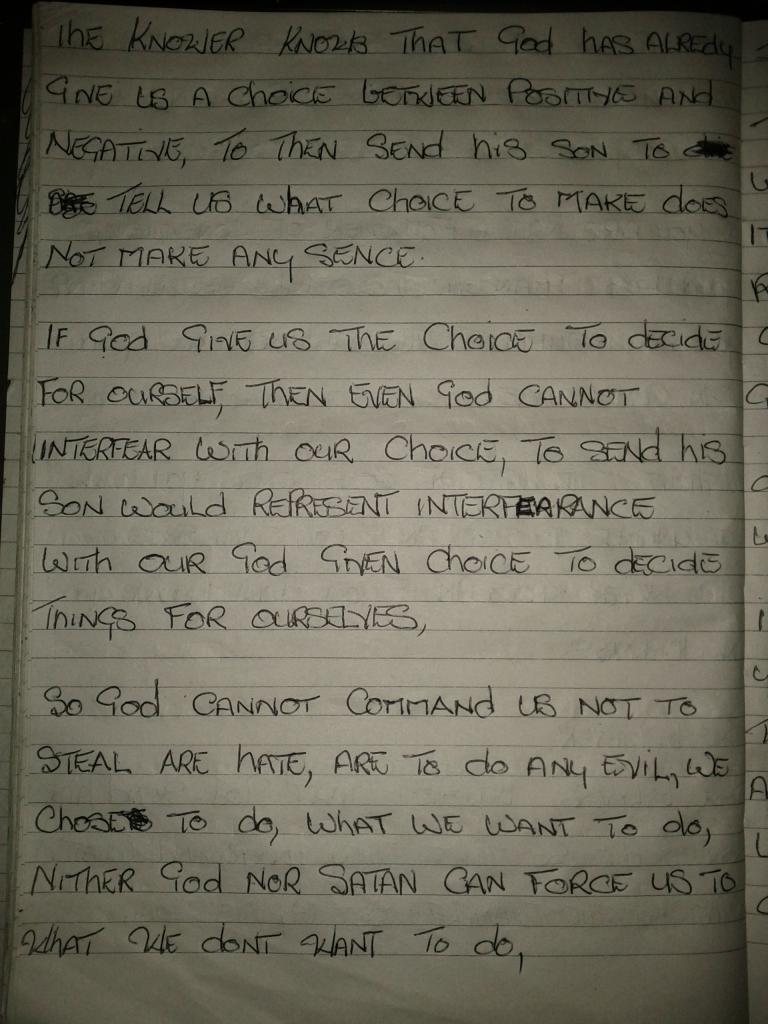 THE KNOWER KNOWS THAT God hAS ALREdy
GIVE US A ChOICE bETWEEN POSITIVE ANd
NEGATIVE, TO ThEN SENd hIS SON TO
TELL US WhAT ChOICE TO MAKE dOES
NOT MAKE ANy SENCE.
IF God GIVE US THE ChOICE TO dECIdE
FOR OURSELF, THEN EVEN God CANNOT
INTERFEAR WITh OUR ChOICE, TO SENd hIS
SON WOULd REPRESENT INTERFEARANCE
WITh OUR God GIVEN ChOICE TO dECIdE
ThINGS FOR OURSELVES,
SO God CANNOT COMMANd US NOT TO
STEAL ARE hATE, ARE TO do ANy EVIL, WE
ChOSE TO do, WhAT WE WANT TO do,
NITHER God NOR SATAN CAN FORCE US TO
WhAT WE dONT WANT TO do,